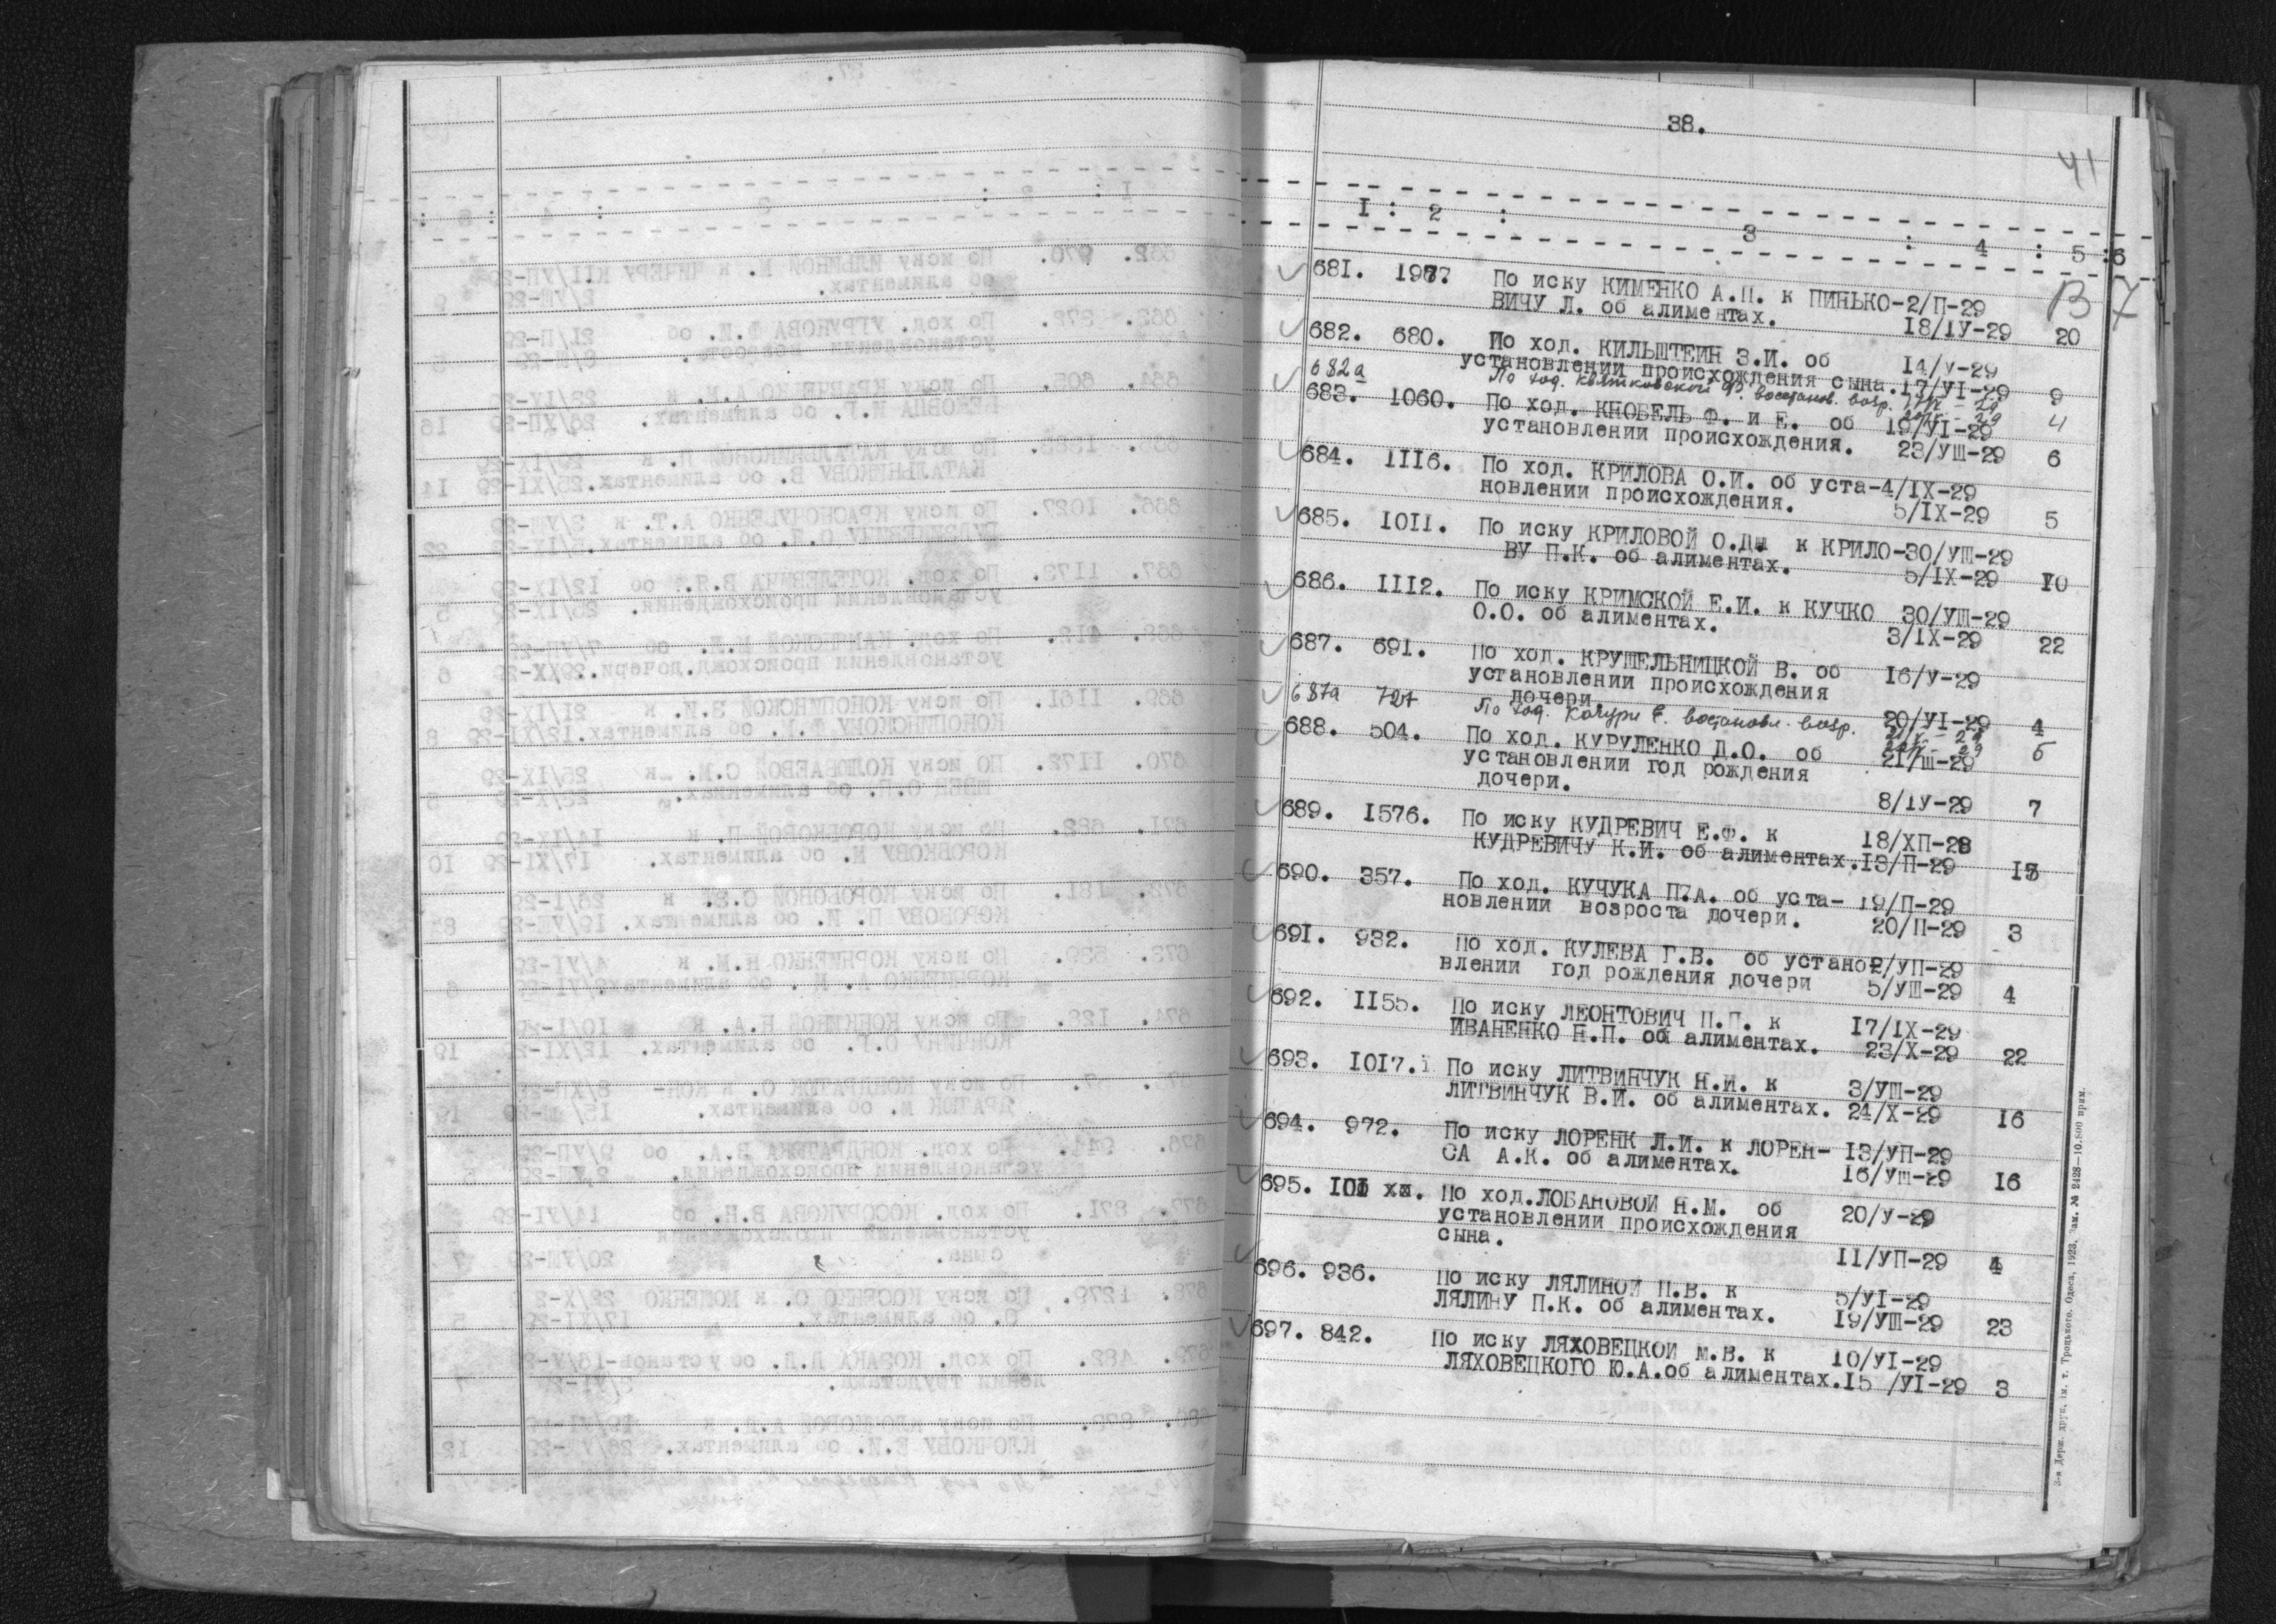 38.
41
I : 2 : 3 : 4 : 5 : 6
681. 1967. По иску КИМЕНКО А.П. к ПИНЬКО-2/П-29
ВИЧУ Л. об алиментах. 18/1У-29 20
682. 680. По ход. КИЛЬШТЕИН З.И. об 14/У-29
установлении происхождения сына.17/УI-29 9
682а По ход. Квятковской Ф. восстанов. возр. 4
683. 1060. По ход. КНОБЕЛЬ Ф. и Е. об 19/УI-29
установлении происхождения. 23/УШ-29 6
684. 1116. По ход. КРИЛОВА О.И. об уста-4/IX-29
новлении происхождения. 5/IX-29 5
685. 1011. По иску КРИЛОВОЙ О.Дш к КРИЛО-30/УШ-29
ВУ П.К. об алиментах. 5/IX-29 10
686. 1112. По иску КРИМСКОЙ Е.И. к КУЧКО 30/УШ-29
О.О. об алиментах. 3/IX-29 22
687. 691. По ход. КРУШЕЛЬНИЦКОЙ В. об 16/У-29
установлении происхождения
дочери 20/УI-29 4
687а 727 По ход. Качури Е. востановл. возр. 5
688. 504. По ход. КУРУЛЕНКО Д.О. об 21/Ш-29
установлении год рождения
дочери. 8/1У-29 7
689. 1576. По иску КУДРЕВИЧ Е.Ф. к 18/ХП-28
КУДРЕВИЧУ К.И. об алиментах.13/П-29
690. 357. По ход. КУЧУКА П?А. об уста- 19/П-29
новлении возроста дочери. 20/П-29 3
691. 932. По ход. КУЛЕВА Г.В. об устано2/УП-29
влении год рождения дочери 5/УШ-29 4
692. 1155. По иску ЛЕОНТОВИЧ П.П. к 17/IX-29
ИВАНЕНКО Н.П. об алиментах. 23/X-29 22
693. 1017. По иску ЛИТВИНЧУК Н.И. к 3/УШ-29
ЛИТВИНЧУК В.И. об алиментах. 24/X-29 16
694. 972. По иску ЛОРЕНК Л.И. к ЛОРЕН- 13/УП-29
СА А.К. об алиментах. 16/УШ-29 16
695. По ход.ЛОБАНОВОЙ Н.М. об 20/У-29
установлении происхождения
сына. 11/УП-29 4
696. 936. По иску ЛЯЛИНОЙ П.В. к 5/УI-29
ЛЯЛИНУ П.К. об алиментах. 19/УШ-29 23
697. 842. По иску ЛЯХОВЕЦКОЙ М.В. к 10/УI-29
ЛЯХОВЕЦКОГО Ю.А.об алиментах.15 /УI-29 3
3-я Держ. друк. ім. т. Троцького. Одеса, 1923. Зам. № 2428—10.800 прим.